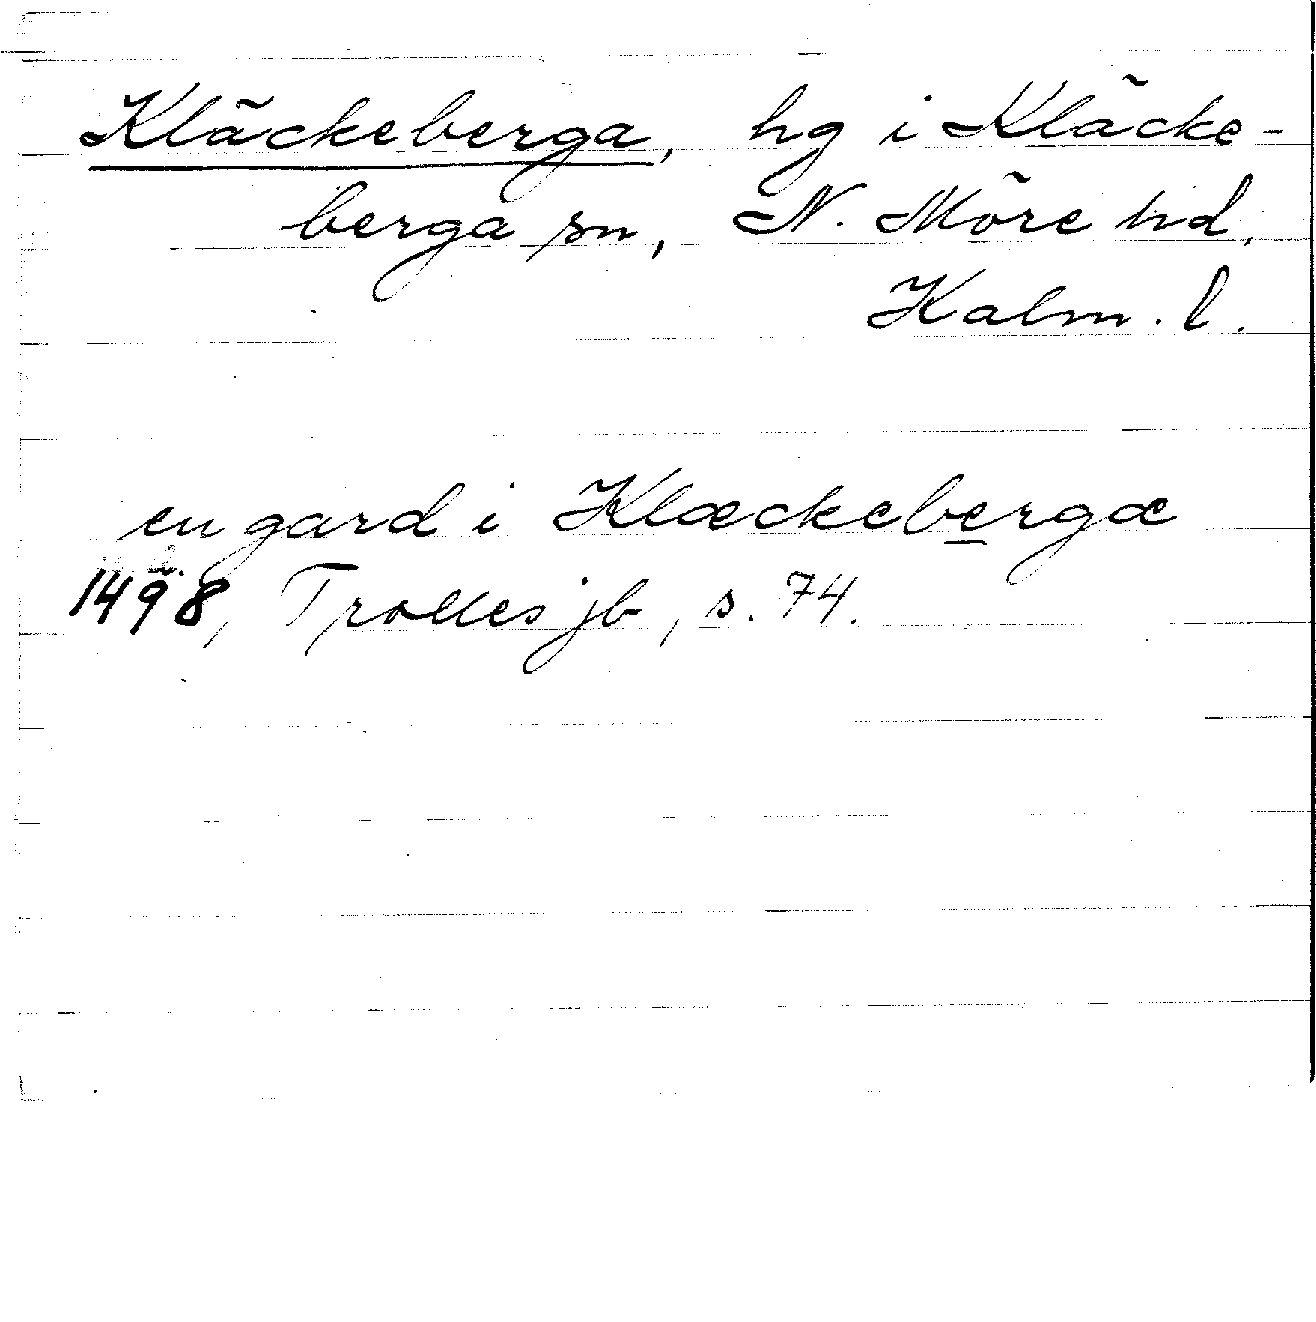 Kläckeberga, hg i Kläcke-
berga sn, N. Möre hd,
Kalm. l.
en gard i Klæckebergæ
1498, Trolles jb, s. 74.